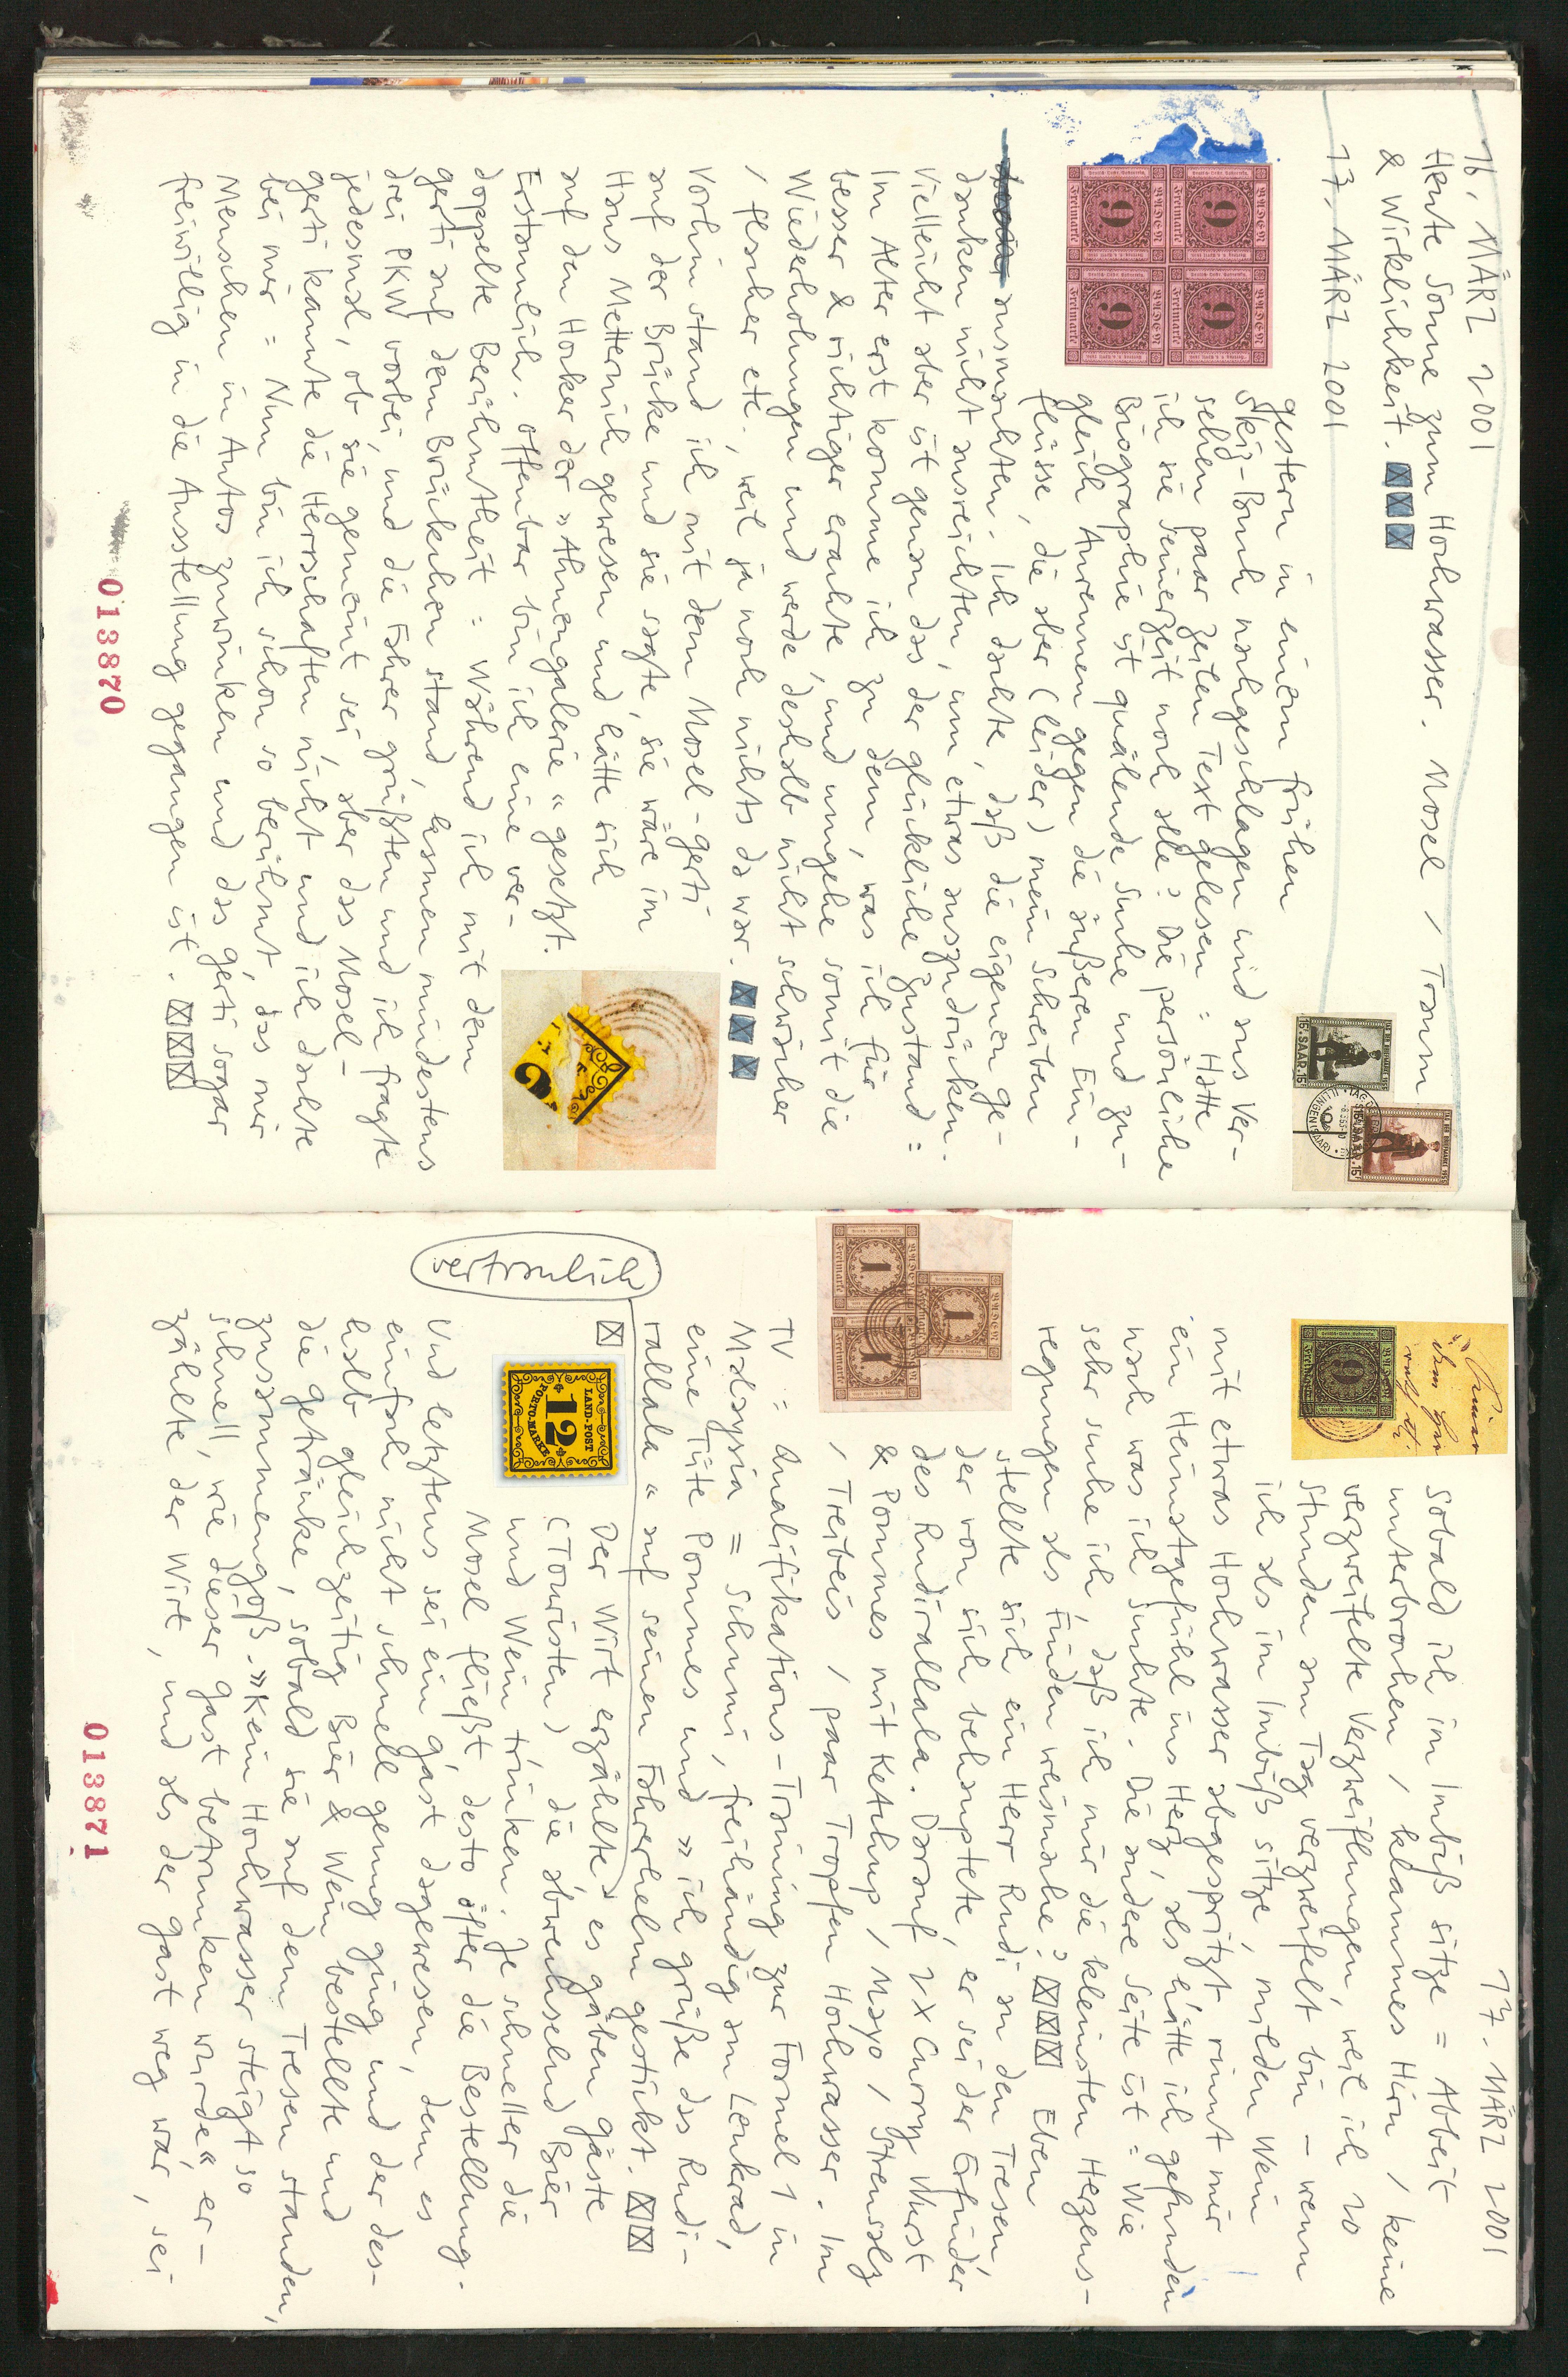 16. MÄRZ 2001
Heute Sonne zum Hochwasser. Mosel / Traum
& Wirklichkeit.
17. MÄRZ 2001
gestern in einem frühen
Skiz-Buch nachgeschlagen und aus Ver-
sehen paar Zeilen Text gelesen : Hatte
ich sie seinerzeit noch alle? Die persönliche
Biographie ist quälende Suche und zu-
gleich Anrennen gegen die äußeren Ein-
flüsse, die aber (leider) mein Schreiben
ausmachten. Ich dachte, daß die eigenen Ge-
danken nicht ausreichten, um etwas auszudrücken.
Vielleicht aber ist genau das der glückliche Zustand :
Im Alter erst komme ich zu dem, was ich für
besser & richtiger erachte, und umgehe somit die
Wiederholungen und werde deshalb nicht schwächer
/ flacher etc., weil ja noch nichts da war.
Vorhin stand ich mit dem Mosel-Gerti
auf der Brücke und sie sagte, sie wäre im
Haus Metternich gewesen und hätte sich
auf den Hocker der »Ahnengalerie« gesetzt.
Erstaunlich. Offenbar bin ich eine ver-
doppelte Berühmtheit : Während ich mit dem
Gerti auf dem Brückchen stand, kamen mindestens
drei PKW vorbei, und die Fahrer grüßten und ich fragte
jedesmal, ob sie gemeint sei, aber das Mosel-
Gerti kannte die Herrschaften nicht und ich dachte
bei mir : Nun bin ich schon so berühmt, das mir
Menschen in Autos zuwinken und das Gerti sogar
freiwillig in die Ausstellung gegangen ist.
013870
Freimarke
6
Freimarke
6
Freimarke
6
Freimarke
6
15F SAAR 15F
15F SAAR 15F
17. MÄRZ 2001
Sobald ich im Imbiß sitze = Arbeit
unterbrochen / klammes Hirn / keine
verzweifelte Verzweiflungen, weil ich 20
Stunden am Tag verzweifelt bin – wenn
ich als im Imbiß sitze, milden Wein
mit etwas Hochwasser abgespritzt rinnt mir
ein Heimatgefühl ins Herz, als hätte ich gefunden
nach was ich suchte. Die andere Seite ist : Wie
sehr suche ich, daß ich mir die kleinsten Herzens-
regungen als Finden weismache? Eben
stellte sich ein Herr Rudi an den Tresen,
der von sich behauptete, er sei der Erfinder
des Rudirallala. Darauf 2x Curry Wurst
& Pommes mit Ketchup / Mayo / Streusalz
/ Treibeis / paar Tropfen Hochwasser. Im
TV : Qualifikations-Training zur Formel 1 in
Malaysia = Schumi, freihändig am Lenkrad,
eine Tüte Pommes und »ich grüße das Rudi-
rallala« auf seinen Fahrerhelm gestickt.
vertraulich
Der Wirt erzählte, es gäben Gäste
(Touristen) die abwechselnd Bier
und Wein trinken. Je schneller die
Mosel fließt, desto öfter die Bestellung.
Und letztens sei ein Gast dagewesen, dem es
einfach nicht schnell genug ging und der des-
halb gleichzeitig Bier & Wein bestellte und
die Getränke, sobald sie auf dem Tresen standen,
zusammengoß. »Kein Hochwasser steigt so
schnell, wie dieser Gast betrunken wurde« er-
zählte der Wirt, und als der Gast weg war, sei
013871
6
1
1
1
LAND-POST
12
PORTO-MARKE